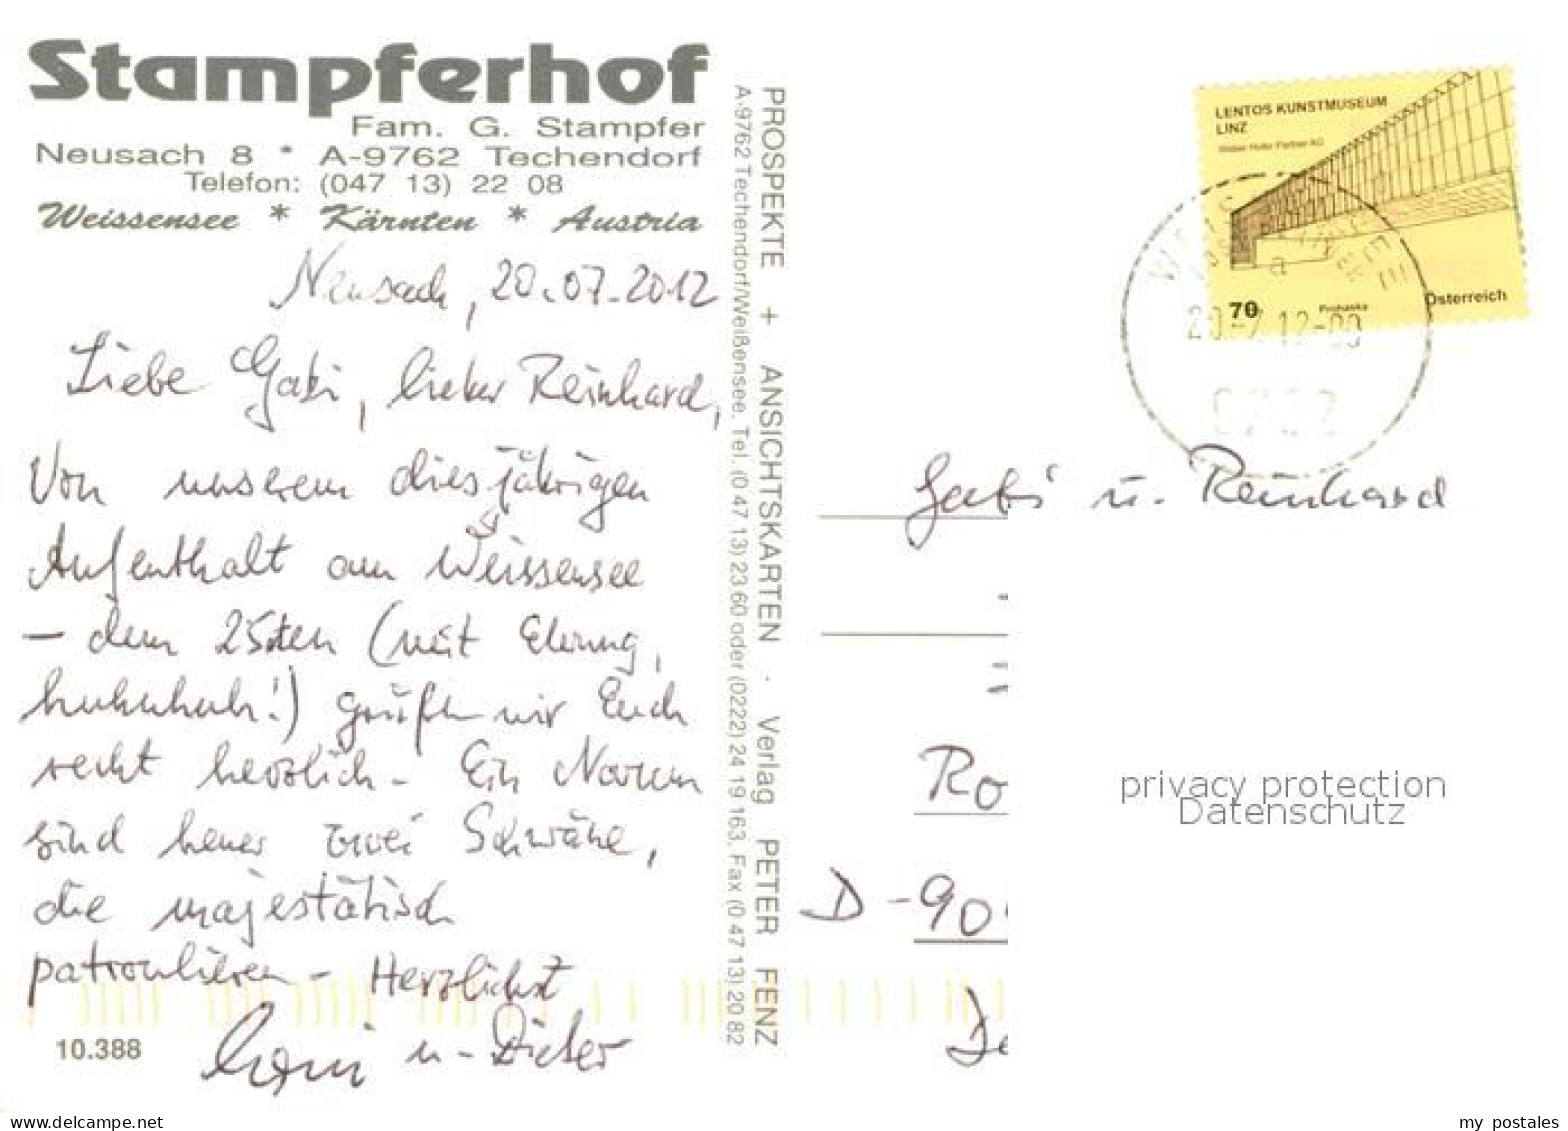 Stampferhof
Fam. G. Stampfer
Neusach 8 * A-9762 Techendorf
Telefon: (047 13) 22 08
Weissensee * Kärnten * Austria
Neusach, 20.07.2012
Liebe Gabi, lieber Reinhard,
Von unserem diesjährigen
Aufenthalt am Weissensee
– dem 25sten (mit Ehrung,
huhuhuh!) grüßen wir Euch
recht herzlich – Ein Novum
sind heuer zwei Schwäne,
die majestätisch
patroulieren – Herzlichst
u. Dieter
10.388
PROSPEKTE + ANSICHTSKARTEN · Verlag PETER FENZ
A-9762 Techendorf/Weißensee, Tel. (0 47 13) 23 60 oder (0222) 24 19 163, Fax (0 47 13) 20 82
LENTOS KUNSTMUSEUM
LINZ
Weber Hofer Partner AG
70
Prohaska
Österreich
a
20.-7.12-00
Gabi u. Reinhard
Ro
D - 90
De
privacy protection
Datenschutz
www.delcampe.net
my postales